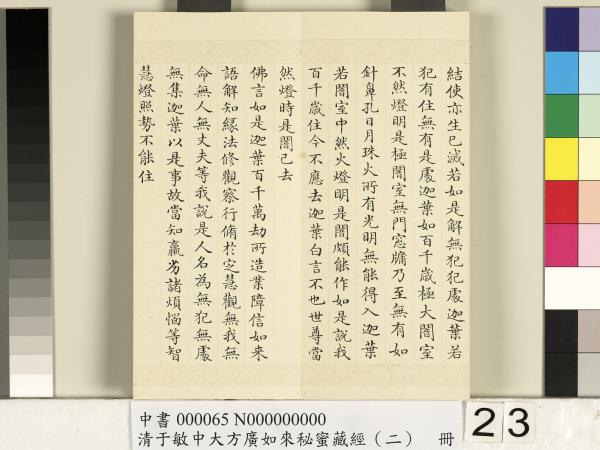 結使亦生已滅若如是解無犯犯處迦葉若
犯有住無有是處迦葉如百千歲極大闇室
不然燈明是極闇室無門窓牖乃至無有如
針鼻孔日月珠火所有光明無能得入迦葉
若闇室中然火燈明是闇頗能作如是說我
百千歲住今不應去迦葉白言不也世尊當
然燈時是闇已去
佛言如是迦葉百千萬劫所造業障信如來
語解知緣法修觀察行脩於定慧觀無我無
命無人無丈夫等我說是人名為無犯無處
無集迦葉以是事故當知羸劣諸煩惱等智
慧燈照勢不能住
中書 000065 N000000000
清于敏中大方廣如來秘蜜藏經（二） 冊
23